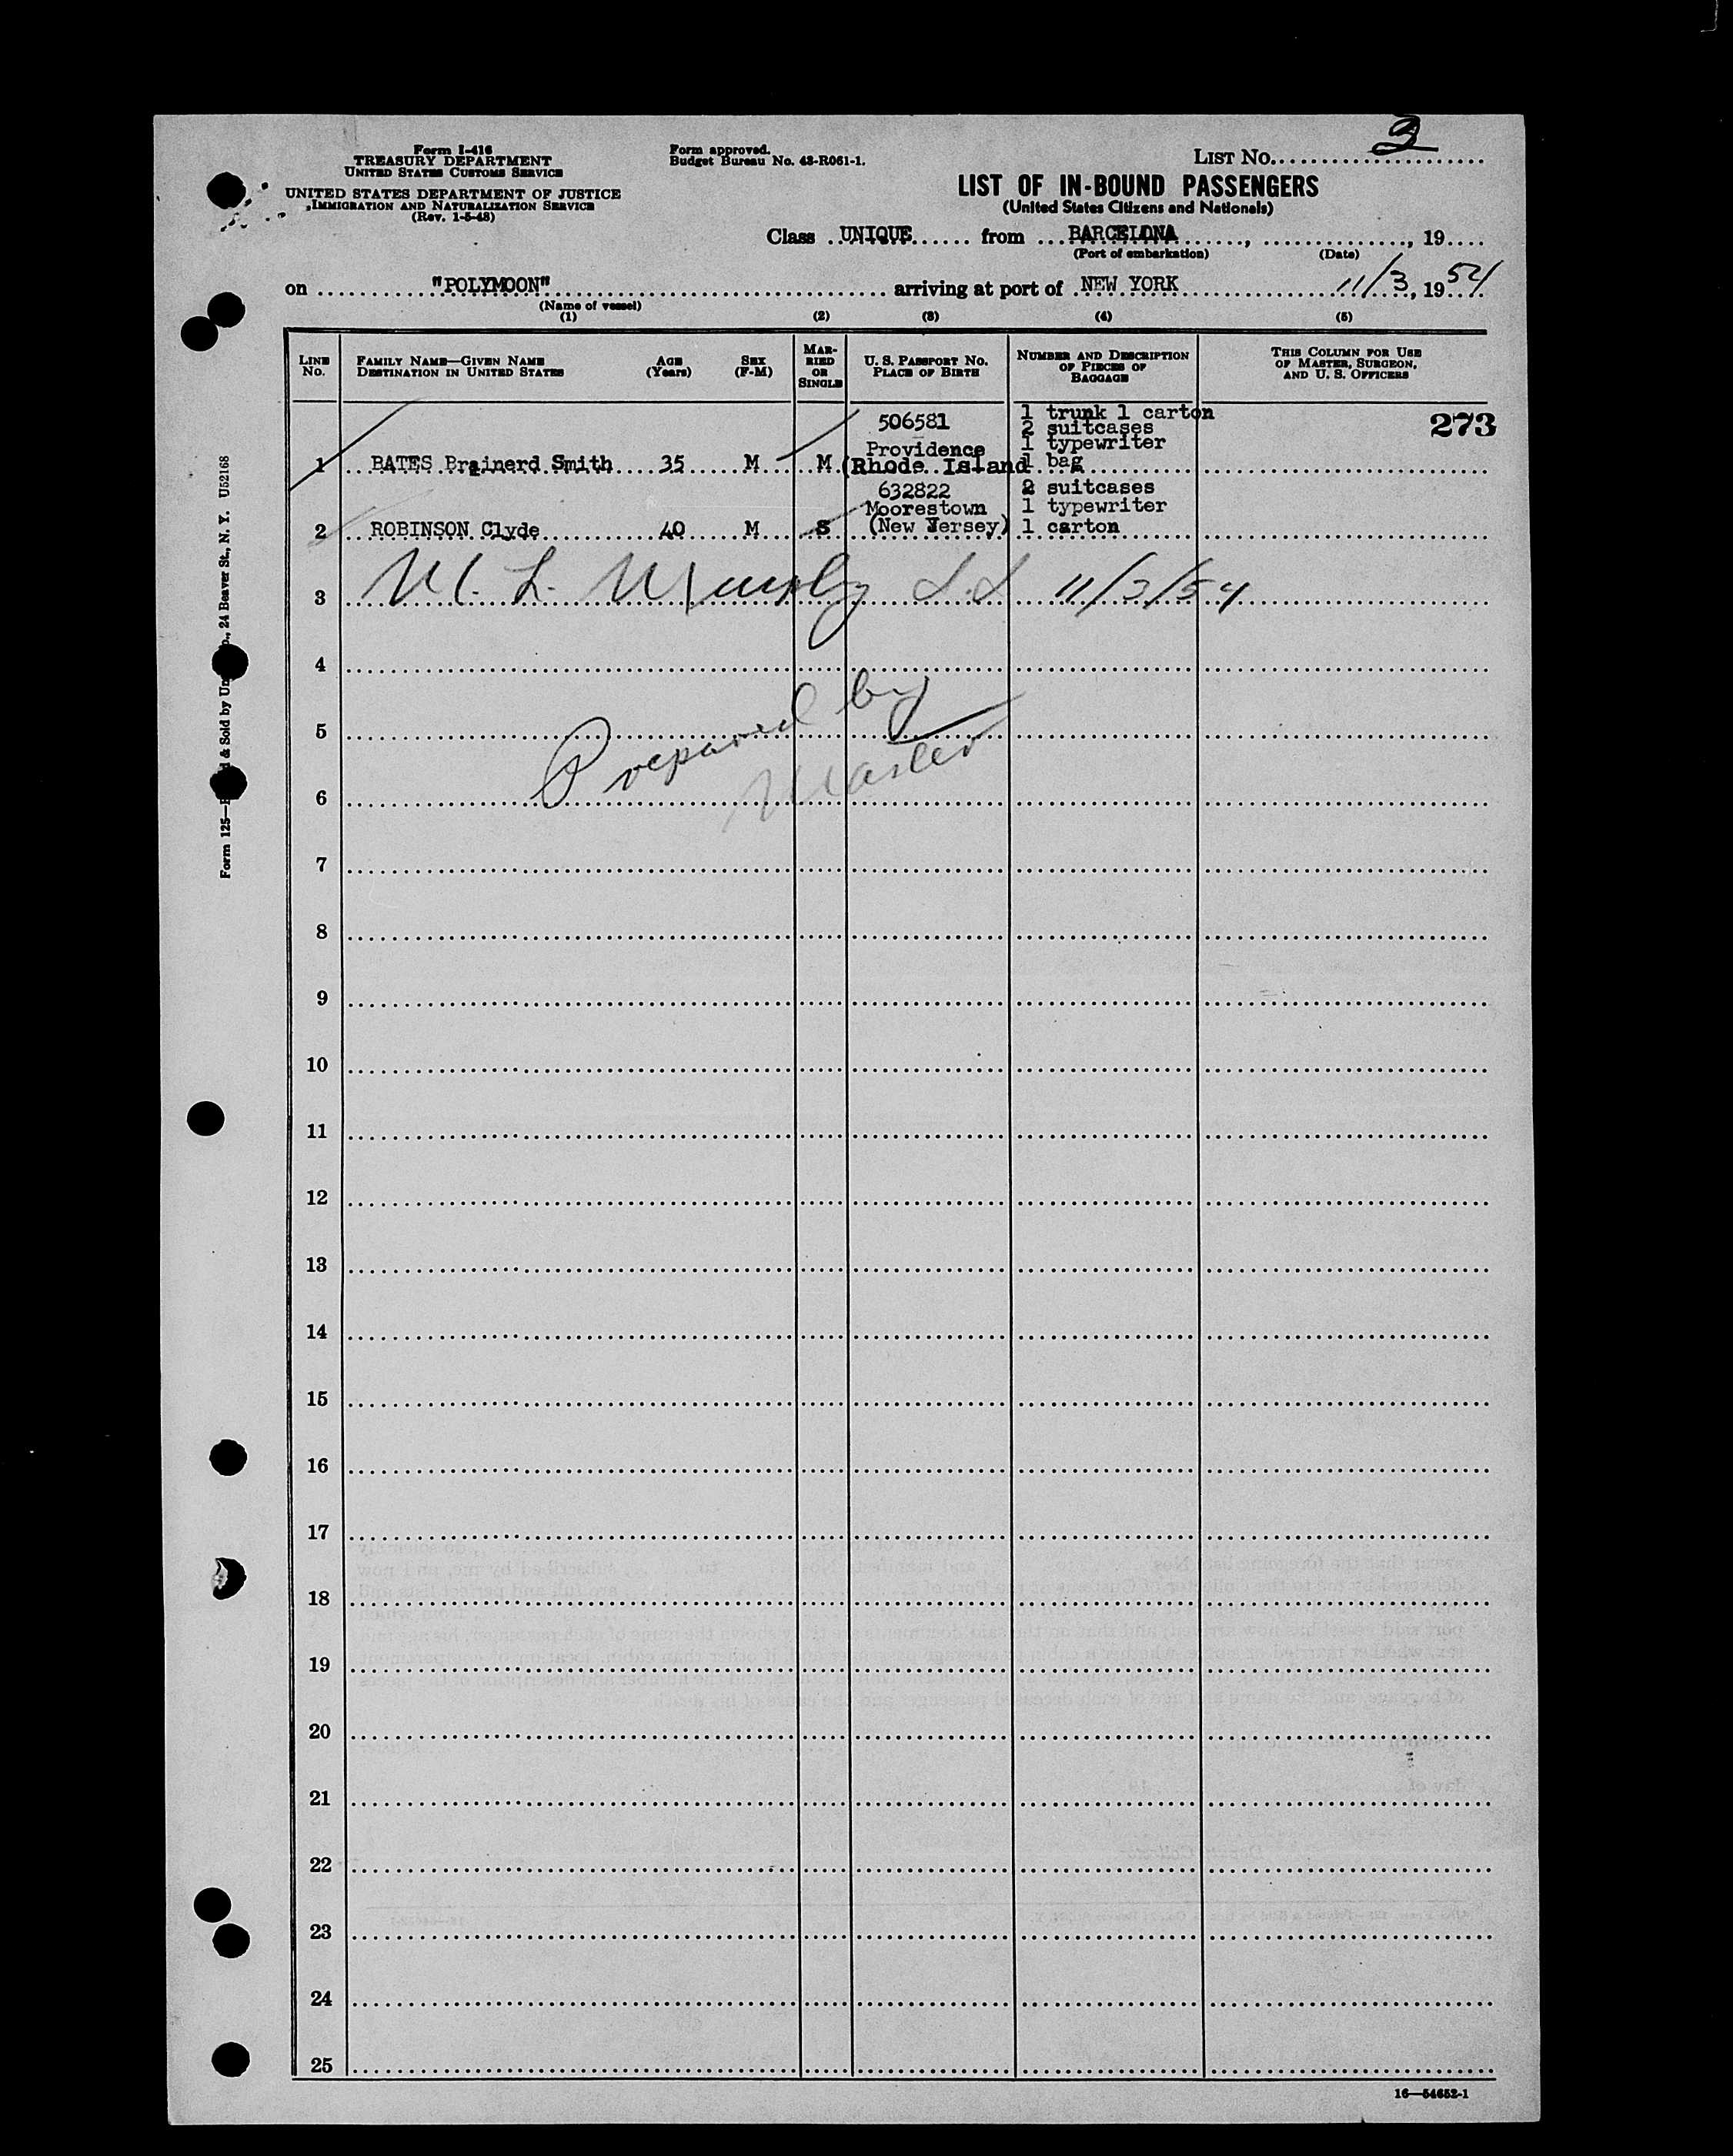 Form I-416
TREASURY DEPARTMENT
UNITED STATES CUSTOMS SERVICE
UNITED STATES DEPARTMENT OF JUSTICE
IMMIGRATION AND NATURALIZATION SERVICE
(Rev. 1-5-48)
Form approved.
Budget Bureau No. 43-R061-1.
LIST NO.
LIST OF IN-BOUND PASSENGERS
(United States Citizens and Nationals)
Class UNIQUE from BARCELONA, , 19
(Port of embarkation) (Date)
on "POLYMOON" arriving at port of NEW YORK 11/3, 1954
(Name of vessel)
(1) (2) (3) (4) (5)
LINE NO.
FAMILY NAME—GIVEN NAME
DESTINATION IN UNITED STATES
AGE (Years)
SEX (F-M)
MARRIED OR SINGLE
U. S. PASSPORT NO.
PLACE OF BIRTH
NUMBER AND DESCRIPTION OF PIECES OF BAGGAGE
THIS COLUMN FOR USE OF MASTER, SURGEON, AND U. S. OFFICERS
273
506581 1 trunk 1 carton
2 suitcases
Providence 1 typewriter
1 BATES Brainerd Smith 35 M M (Rhode Island 1 bag
632822 2 suitcases
Moorestown 1 typewriter
2 ROBINSON Clyde 40 M S (New Jersey) 1 carton
3 11/3/54
4
Prepared by
5
Master
6
7
8
9
10
11
12
13
14
15
16
17
18
19
20
21
22
23
24
25
16—54652-1
Form 125— & Sold by , 24 Beaver St., N. Y. U52168